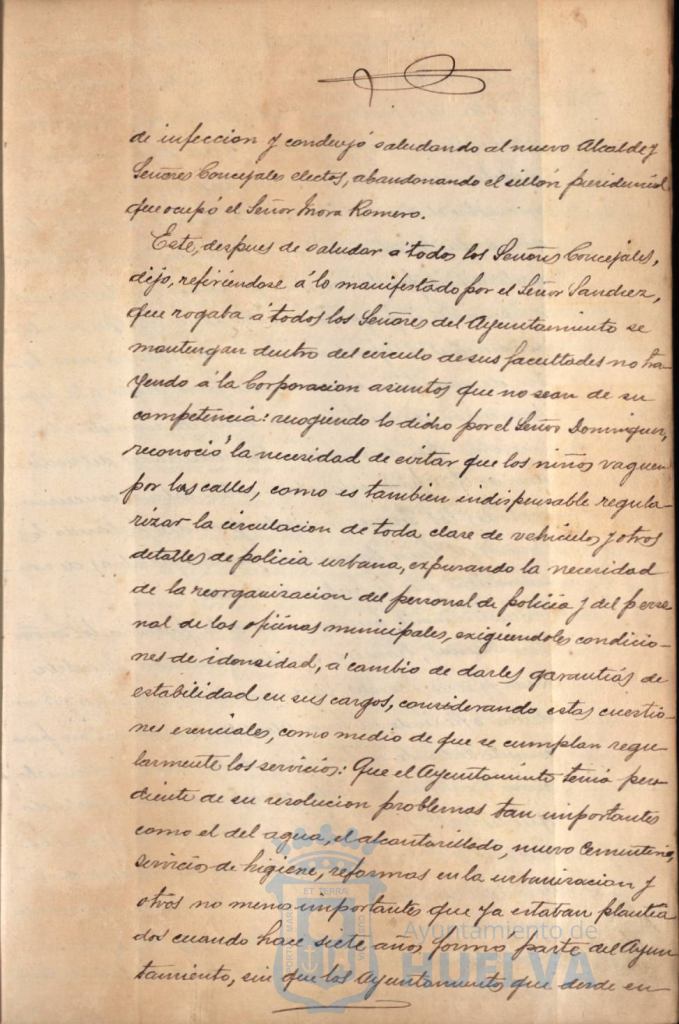 de infeccion y concluyó saludando al nuevo Alcalde y
Señores Concejales electos, abandonando el sillón presidencial
que ocupó el Señor Mora Romero.
Este, despues de saludar á todos los Señores Concejales,
dijo, refiriendose á lo manifestado por el Señor Sanchez,
que rogaba á todos los Señores del Ayuntamiento se
mantengan dentro del circulo de sus facultades no tra-
yendo á la Corporacion asuntos que no sean de su
competencia: recogiendo lo dicho por el Señor Dominguez,
reconoció la necesidad de evitar que los niños vaguen
por las calles, como es tambien indispensable regula-
rizar la circulacion de toda clase de vehiculos y otros
detalles de policia urbana, expresando la necesidad
de la reorganizacion del personal de policia y del perso
nal de las oficinas municipales, exigiendoles condicio-
nes de idoneidad, á cambio de darles garantias de
estabilidad en sus cargos, considerando estas cuestio-
nes esenciales, como medio de que se cumplan regu
larmente los servicios: Que el Ayuntamiento tenia pen-
diente de su resolucion problemas tan importantes
como el del agua, el alcantarillado, nuevo Cementerio,
servicios de higiene, reformas en la urbanizacion y
otros no menos importantes que ya estaban plantea
dos cuando hace siete años formó parte del Ayun
tamiento, sin que los Ayuntamientos que desde en
ET TERRÆ
Ayuntamiento de
HUELVA